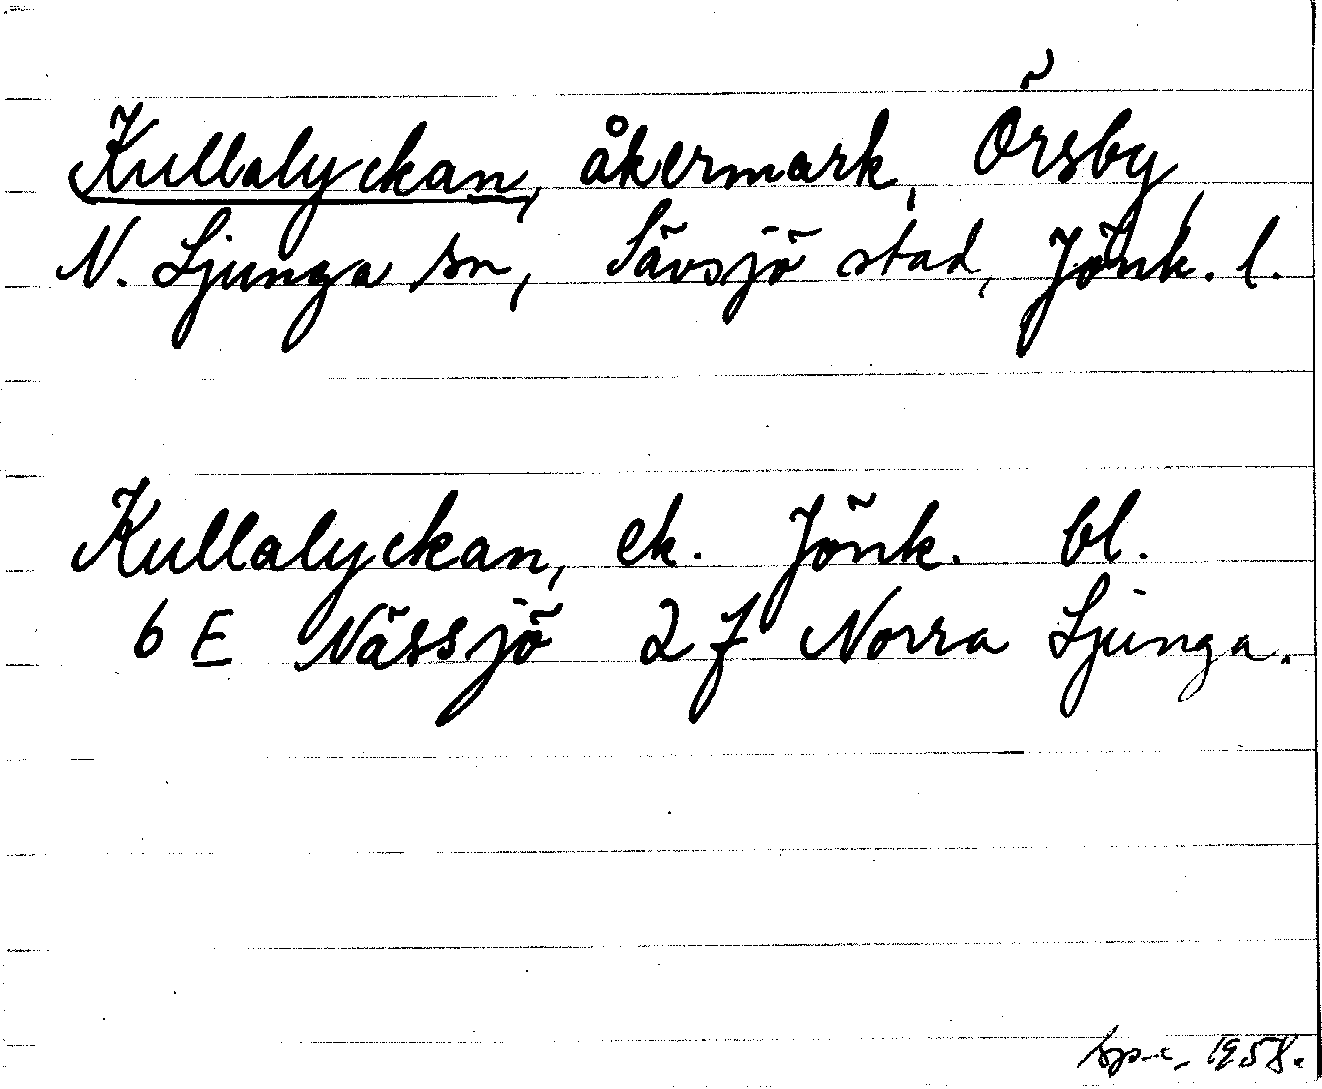 Kullalyckan, åkermark, Örsby,
N. Ljunga sn, Sävsjö stad, Jönk. l.
Kullalyckan, ek. Jönk. bl.
6 E Nässjö 2 f Norra Ljunga.
1958.